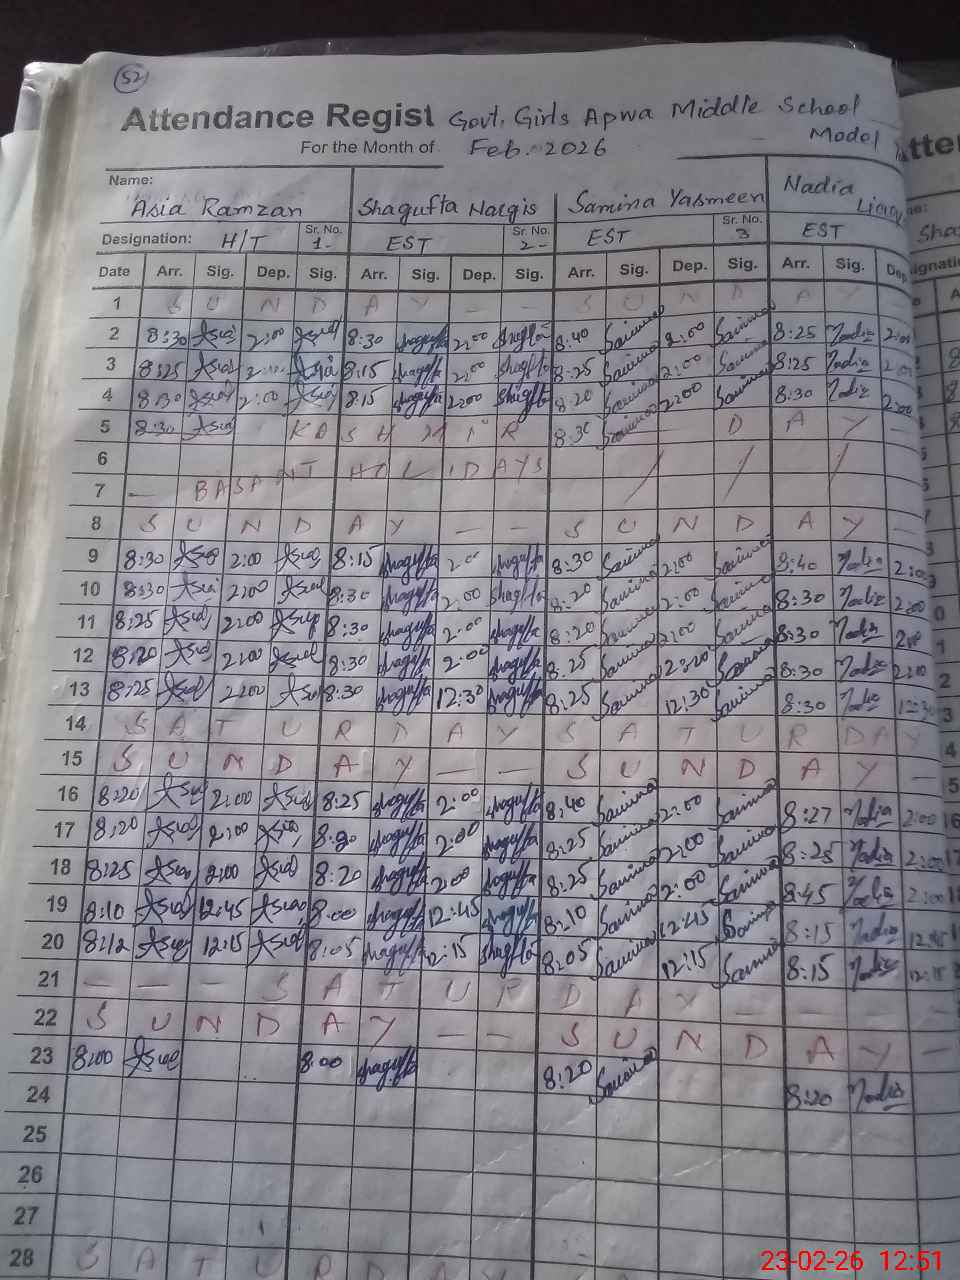 52
Attendance Regist Govt. Girls Apwa Middle School
Model
For the Month of Feb. 2026
Name: Asia Ramzan Shagufta Nargis Samina Yasmeen Nadia
Designation: H/T Sr. No. 1- EST Sr. No. 2- EST Sr. No. 3 EST
Date Arr. Sig. Dep. Sig. Arr. Sig. Dep. Sig. Arr. Sig. Dep. Sig. Arr. Sig. Dep
1 S U N D A Y — — S U N D A Y —
2 8:30 Asia 2:00 Asia 8:30 Shagufta 2:00 Shagufta 8:40 Samina 2:00 Samina 8:25 Nadia 2:00
3 8:25 Asia Asia 8:15 Shagufta 2:00 Shagufta 8:25 Samina 2:00 Samina 8:25 Nadia
4 8:30 Asia 2:00 Asia 8:15 Shagufta 2:00 Shagufta 8:20 Samina 2:00 Samina 8:30 Nadia 2:00
5 8:30 Asia K A S H M I R 8:30 Samina D A Y —
6
7 — BASANT HOLIDAYS / / /
8 S U N D A Y — — S U N D A Y —
9 8:30 Asia 2:00 Asia 8:15 Shagufta 2:00 Shagufta 8:30 Samina 2:00 Samina 8:40 Nadia 2:00
10 8:30 Asia 2:00 Asia 8:30 Shagufta 2:00 Shagufta 8:20 Samina 2:00 Samina 8:30 Nadia 2:00
11 8:25 Asia 2:00 Asia 8:30 Shagufta 2:00 Shagufta 8:20 Samina 2:00 Samina 8:30 Nadia 2:00
12 8:20 Asia 2:00 Asia 8:30 Shagufta 2:00 Shagufta 8:25 Samina Samina 8:30 Nadia 2:00
13 8:25 Asia 2:00 Asia 8:30 Shagufta 12:30 Shagufta 8:25 Samina 12:30 Samina 8:30 Nadia 12:30
14 S A T U R D A Y S A T U R D A Y
15 S U N D A Y — — S U N D A Y —
16 8:20 Asia 2:00 Asia 8:25 Shagufta 2:00 Shagufta 8:40 Samina 2:00 Samina 8:27 Nadia 2:00
17 8:20 Asia 2:00 Asia 8:20 Shagufta 2:00 Shagufta 8:25 Samina 2:00 Samina 8:25 Nadia 2:00
18 8:25 Asia 2:00 Asia 8:20 Shagufta 2:00 Shagufta 8:25 Samina 2:00 Samina 8:45 Nadia 2:00
19 8:10 Asia 12:45 Asia 8:00 Shagufta 12:45 Shagufta 8:10 Samina 12:45 Samina 8:15 Nadia 12:45
20 8:12 Asia 12:15 Asia 8:05 Shagufta 12:15 Shagufta 8:05 Samina 12:15 Samina 8:15 Nadia 12:15
21 — — — S A T U R D A Y — — — —
22 S U N D A Y — — S U N D A Y —
23 8:00 Asia 8:00 Shagufta 8:20 Samina 8:20 Nadia
24
25
26
27
28 S A T U R D A Y
23-02-26 12:51